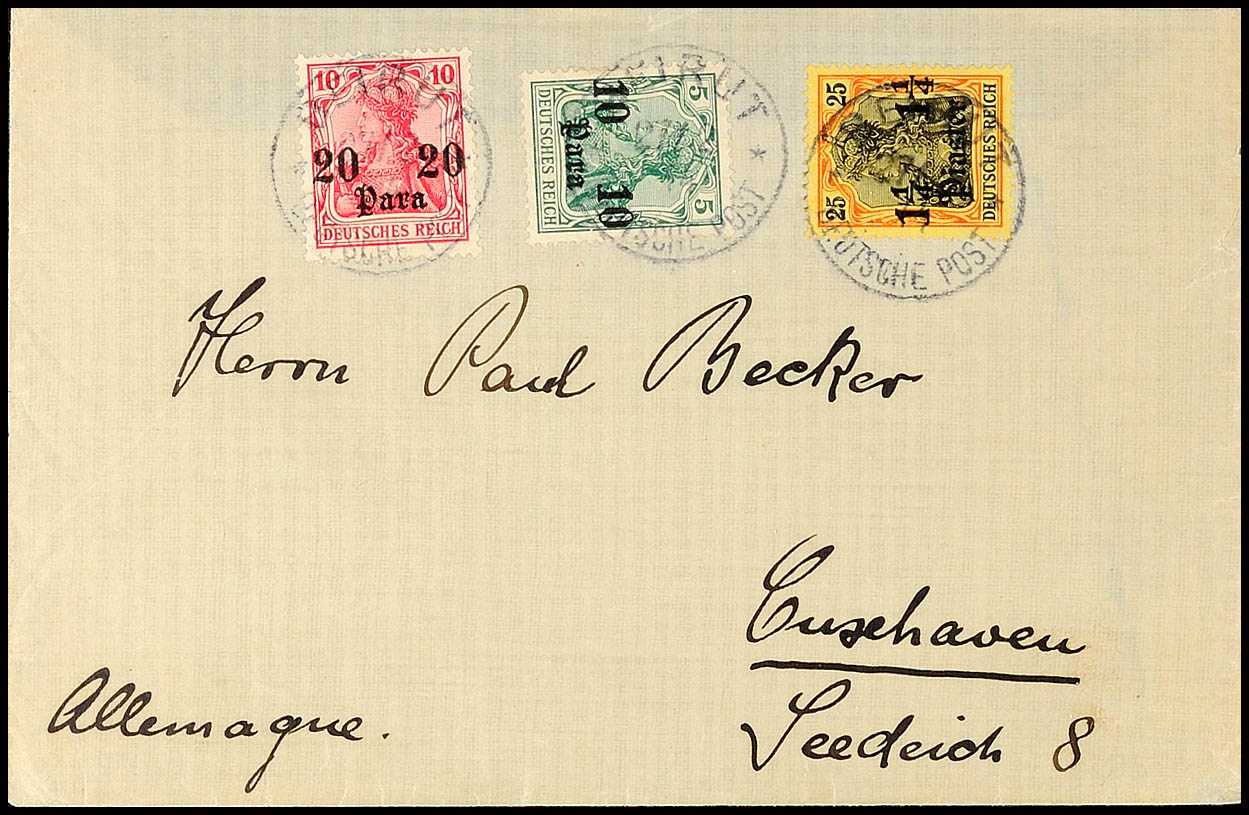 10 10
20 20
Para
DEUTSCHES REICH
5 5
10 10
Para
DEUTSCHES REICH
25 25
1 1/4 1 1/4
Piaster
DEUTSCHES REICH
BEIRUT
DEUTSCHE POST
Herrn Paul Becker
Cuxhaven
Seedeich 8
Allemagne.